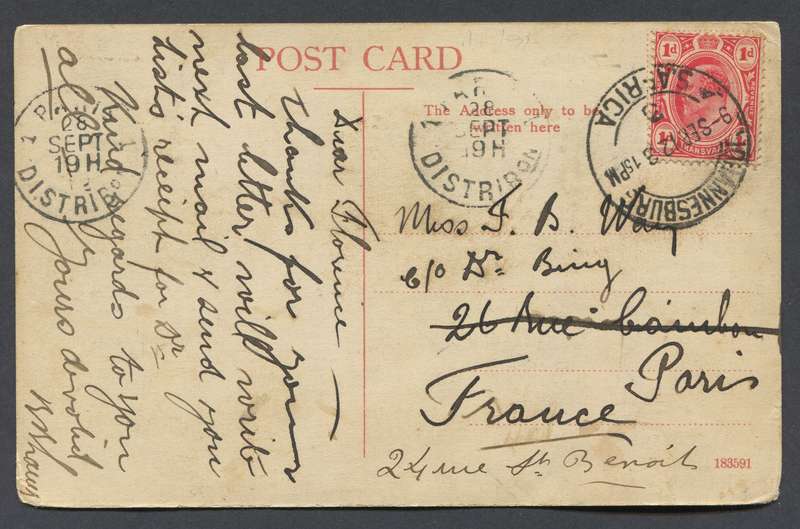 POST CARD
The Address only to be
written here
Dear Florence —
Thanks for your
last letter will write
next mail & send you
List's receipt for Dr
Kind regards to you
all Yours devoted
Miss F. B. Way
c/o Dr. Bing
26 Rue Cambon
Paris
France
24 rue St Benoit
183591
1d 1d
TRANSVAAL
JOHANNESBURG
S. AFRICA
28
SEPT
19H
DISTRIBON
28
SEPT
19H
DISTRIB